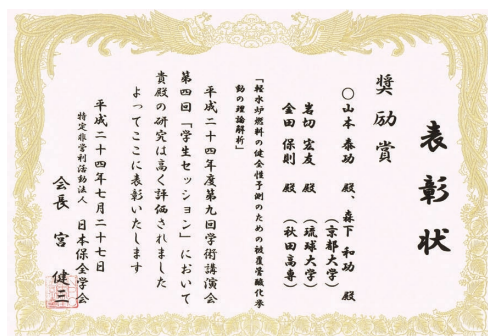 表彰状
奨励賞
○山本 泰功 殿、森下 和功 殿
(京都大学)
岩切 宏友 殿 (琉球大学)
金田 保則 殿 (秋田高専)
「軽水炉燃料の健全性予測のための被覆管酸化挙
動の理論解析」
平成二十四年度第九回学術講演会
第四回「学生セッション」において
貴殿の研究は高く評価されました
よってここに表彰いたします
平成二十四年七月二十七日
特定非営利活動法人 日本保全学会
会長 宮 健三